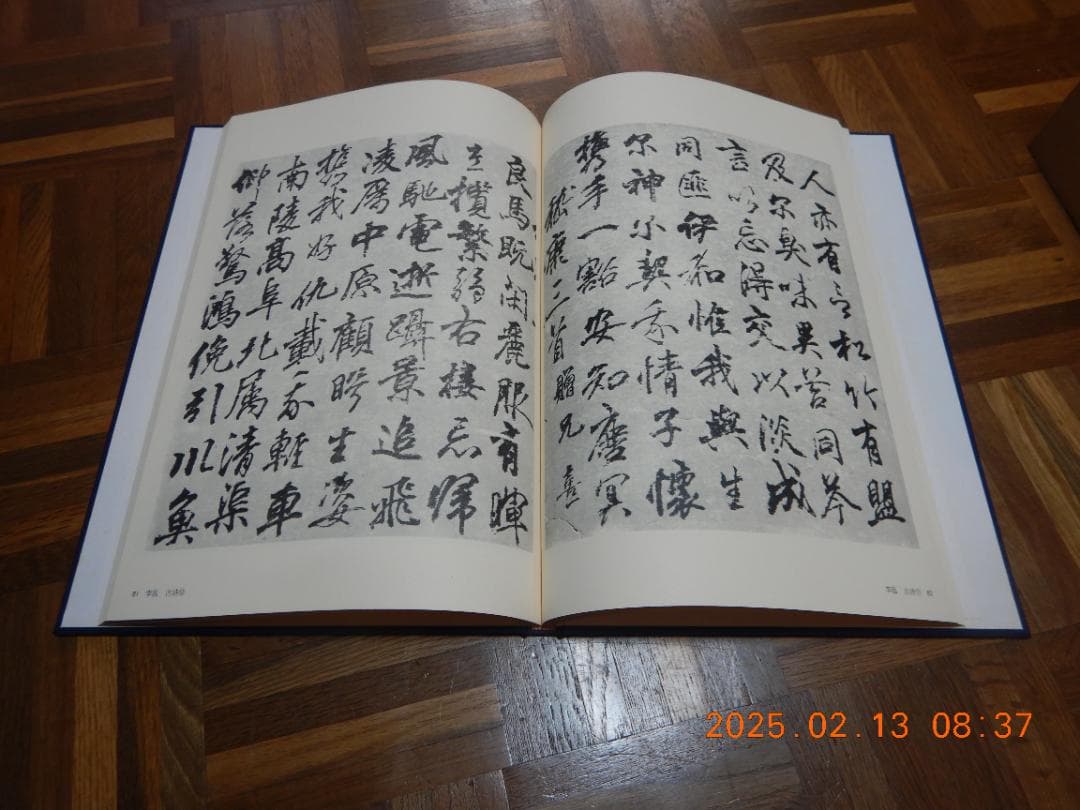 人亦有言松竹有盟
及尔臭味異苔同岑
言以忘得交以淡成
同匪伊和惟我與生
尔神尔契我情子懷
攜手一豁安知塵冥
嵇康三首贈兄喜
良馬既閑麗服有暉
左攬繁弱右接忘歸
風馳電逝躡景追飛
凌厲中原顧盻生姿
攜我好仇載我輕車
南陵高阜北厲清渠
仰落驚鴻俛引川魚
2025.02.13 08:37